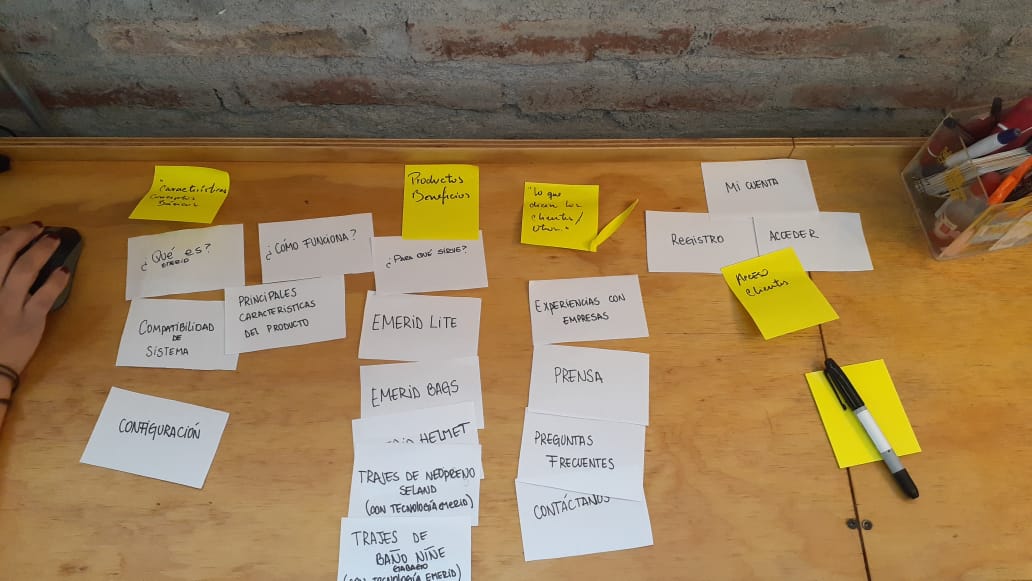 "Características
Conceptos
Básicos
¿Qué es?
EMERID
¿CÓMO FUNCIONA?
COMPATIBILIDAD
DE
SISTEMA
PRINCIPALES
CARACTERÍSTICAS
DEL PRODUCTO
CONFIGURACIÓN
Productos
Beneficios
¿PARA QUÉ SIRVE?
EMERID LITE
EMERID BAGS
HELMET
TRAJES DE NEOPRENO
SELAND
(CON TECNOLOGÍA EMERID)
TRAJES DE
BAÑO NIÑE
(CON TECNOLOGÍA EMERID)
"Lo que
dicen los
clientes/
EXPERIENCIAS CON
EMPRESAS
PRENSA
PREGUNTAS
FRECUENTES
CONTÁCTANOS
MI CUENTA
REGISTRO
ACCEDER
Acceso
Clientes